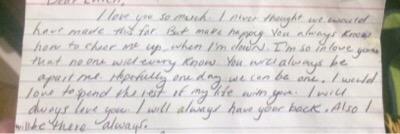 Dear
I love you so much. I never thought we would
have made this far. But make happy. You always know
how to cheer me up, when I'm down. I'm so in love
that no one will every know. You will always be
apart me. Hopefully one day we can be one. I would
love to spend the rest of my life with you. I will
always love you. I will always have your back. Also I
will be there always.